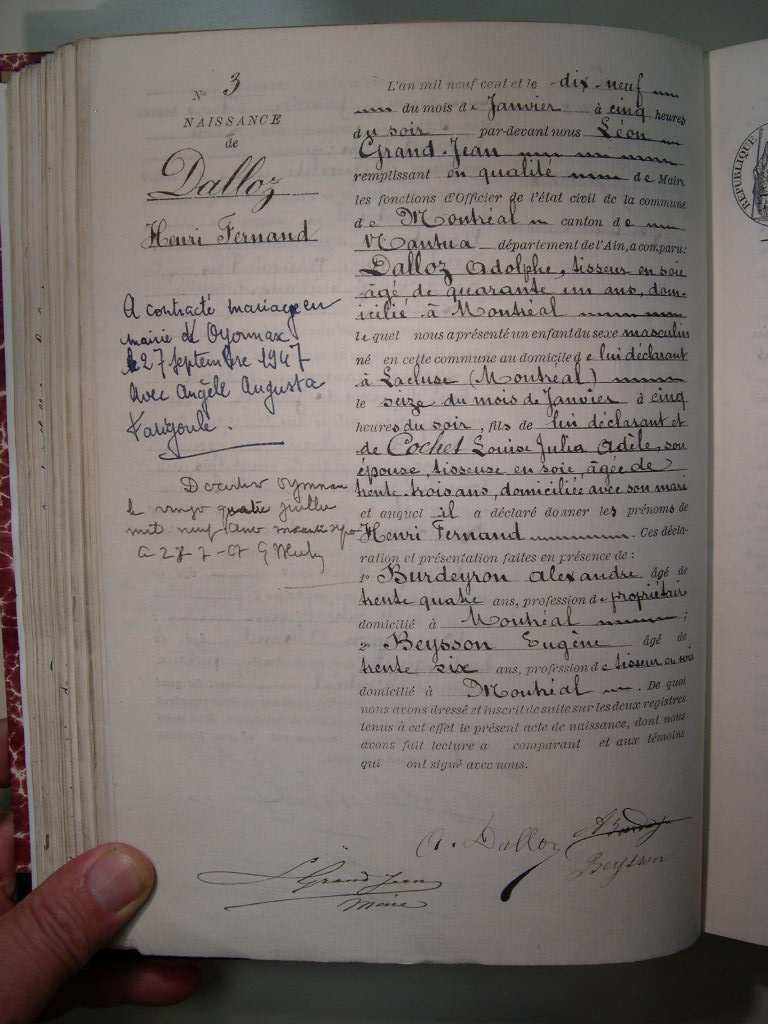 N° 3
NAISSANCE
de
Dalloz
Henri Fernand
A contracté mariage en
mairie de Oyonnax
le 27 septembre 1947
avec Angèle Augusta
Décédé Oyonnax
le vingt quatre juillet
mil neuf cent soixante
L'an mil neuf cent et le dix-neuf
du mois de Janvier à cinq heures
du soir par-devant nous Léon
Grand-Jean
remplissant en qualité de Maire
les fonctions d'Officier de l'état civil de la commune
de Montréal canton de
Nantua département de l'Ain, a comparu:
Dalloz Adolphe, tisseur en soie
âgé, de quarante un ans, dom-
icilié à Montréal
lequel nous a présenté un enfant du sexe masculin
né en cette commune au domicile de lui déclarant
à Lacluse (Montréal)
le seize du mois de Janvier à cinq
heures du soir, fils de lui déclarant et
de Cochet Louise Julia Adèle, son
épouse, tisseuse en soie, âgée de
trente trois ans, domiciliée avec son mari
et auquel il a déclaré donner les prénoms de
Henri Fernand. Ces décla-
ration et présentation faites en présence de:
1° Burdeyron Alexandre âgé de
trente quatre ans, profession de propriétaire
domicilié à Montréal ;
2° Beysson Eugène âgé de
trente six ans, profession de tisseur en soie
domicilié à Montréal. De quoi
nous avons dressé et inscrit de suite sur les deux registres
tenus à cet effet le présent acte de naissance, dont nous
avons fait lecture a comparant et aux témoins
qui ont signé avec nous.
A. Dalloz
Beysson
L Grand Jean
Maire
RÉPUBLIQUE